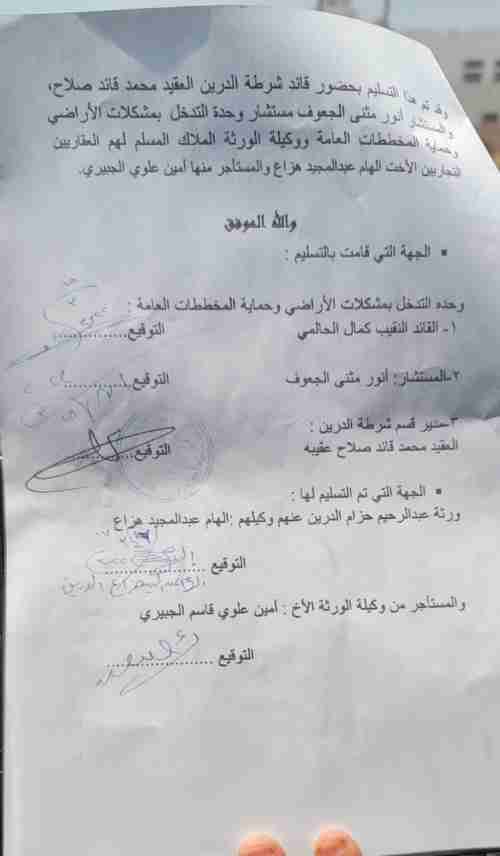 وقد تم هذا التسليم بحضور قائد شرطة الدرين العقيد محمد قائد صلاح،
والمستشار أنور مثنى الجعوف مستشار وحدة التدخل بمشكلات الأراضي
وحماية المخططات العامة ووكيلة الورثة الملاك المسلم لهم العقاريين
التجاريين الأخت الهام عبدالمجيد هزاع والمستأجر منها أمين علوي الجبيري.
والله الموفق
▪ الجهة التي قامت بالتسليم :
وحده التدخل بمشكلات الأراضي وحماية المخططات العامة :
١- القائد النقيب كمال الحالمي التوقيع................
٢-المستشار: أنور مثنى الجعوف التوقيع................
٣-مدير قسم شرطة الدرين :
العقيد محمد قائد صلاح عقيبه التوقيع................
▪ الجهة التي تم التسليم لها :
ورثة عبدالرحيم حزام الدرين عنهم وكيلهم :الهام عبدالمجيد هزاع
التوقيع ......................
والمستأجر من وكيلة الورثة الأخ : أمين علوي قاسم الجبيري
التوقيع ......................